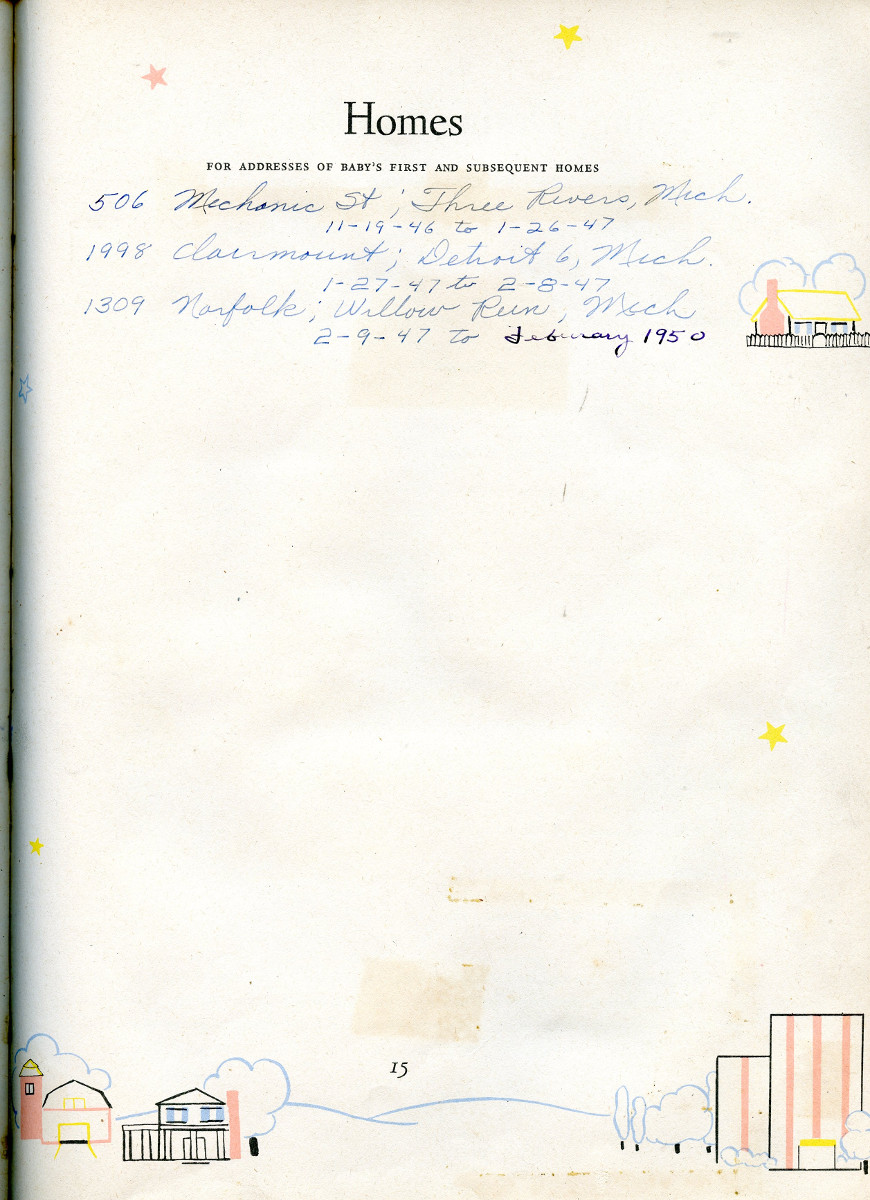 Homes
FOR ADDRESSES OF BABY'S FIRST AND SUBSEQUENT HOMES
506 Mechanic St ; Three Rivers, Mich.
11-19-46 to 1-26-47
1998 Clairmount ; Detroit 6, Mich.
1-27-47 to 2-8-47
1309 Norfolk ; Willow Run , Mich
2-9-47 to Feburary 1950
15